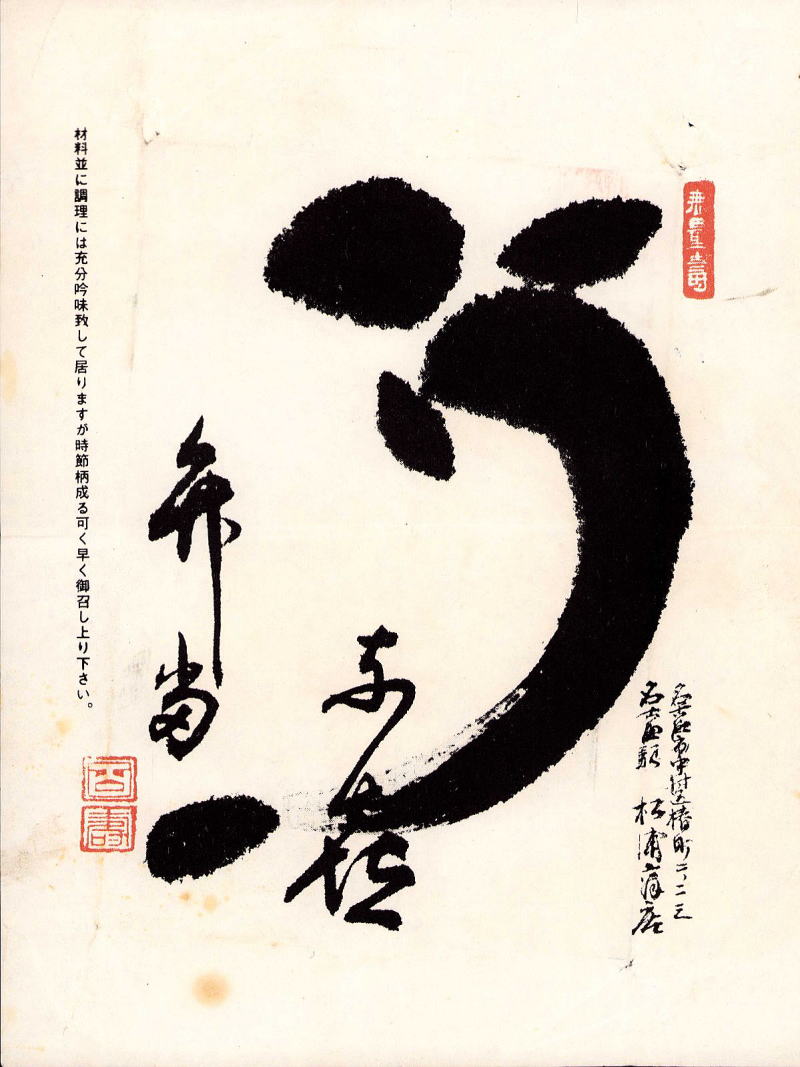 無量壽
名古屋市中村区椿町二、二三
名古屋駅 松浦商店
う
奈起
弁當
材料並に調理には充分吟味致して居りますが時節柄成る可く早く御召し上り下さい。